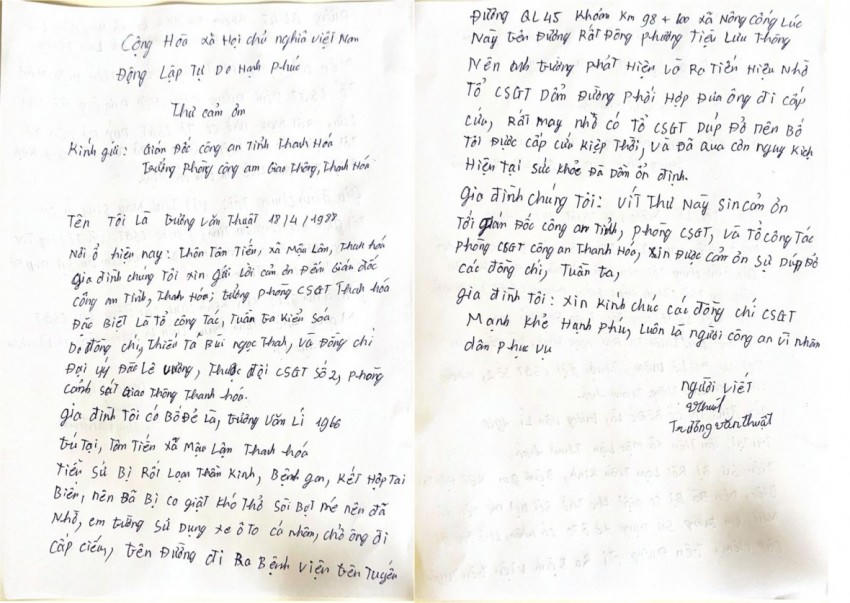 Cộng Hòa xã Hội chủ nghĩa việt Nam
Động Lập Tự Do Hạnh Phúc
Thư cảm ơn
Kính gửi: Gián Đốc công an Tỉnh Thanh Hóa
Trưởng Phòng công an Giao Thông, Thanh Hóa
Tên Tôi Là Trương văn Thuật 18/4/1988
Nơi ở hiện nay: Thôn Tân Tiến, xã Mậu Lâm, Thanh hóa
gia đình chúng Tôi xin gửi Lời cảm ơn Đến Gián đốc
công an Tỉnh, Thanh Hóa; Trưởng phòng CSGT Thanh hóa
Đặc Biệt Là Tổ công Tác, Tuần tra Kiểu Soá
Do đồng chí, Thiếu Tá Bùi ngọc Thạh, và Đồng chí
Đại úy Đắc Lê vường, Thuộc đội CSGT Số 2, phòng
cảnh sát Giao Thông Thanh hóa.
gia đình Tôi có Bố Đẻ Là, trương Văn Lí 1966
trú Tại, Tân Tiến xã Mậu Lậm Thanh hóa
Tiền Sử Bị Rối Loạn Thần Kinh, Bệnh gan, Kết Hợp Tai
Biến, nên Đã Bị co giật Khó Thở Sôi Bọt Mé nên đã
Nhờ, em tường Sử Dụng xe ô to cá nhân, chở ông đi
Cấp ciếm, trên Đường đi Ra Bệnh viện trên Tuyến
Đường QL45 Khoám Km 98 + 100 xã Nông Cống Lúc
Này trên Đường Rất Đông phường Tiệu Lưu Thông
Nên anh trường phát Hiện và Ra Tiến Hiệu Nhờ
Tổ CSGT Dẩm Đường Phối Hợp Đưa ông đi cấp
cứu, Rất may nhờ có Tổ CSGT Dúp Đỏ nên Bố
Tôi Được cấp cứu Kiệp Thời, và Đã qua cơn nguy Kịch
Hiện tại Sức Khỏe Đã Dầm ổn định.
gia đình chúng Tôi: viết Thư Này Sin cảm ơn
Tới Gián Đốc công am Tỉnh, phòng CSGT, và Tổ công Tác
phòng CSGT công an Thanh Hóa, Xin Được cảm ơn Sự Dúp Đỏ
các đồng chí, Tuần ta,
gia đình Tôi: Xin Kinh chúc các đồng chí CSGT
Mạnh Khẻ Hạnh Phúc, Luôn là người công an vì nhân
dân phục vụ
người viết
Thuật
Trương văn Thuật